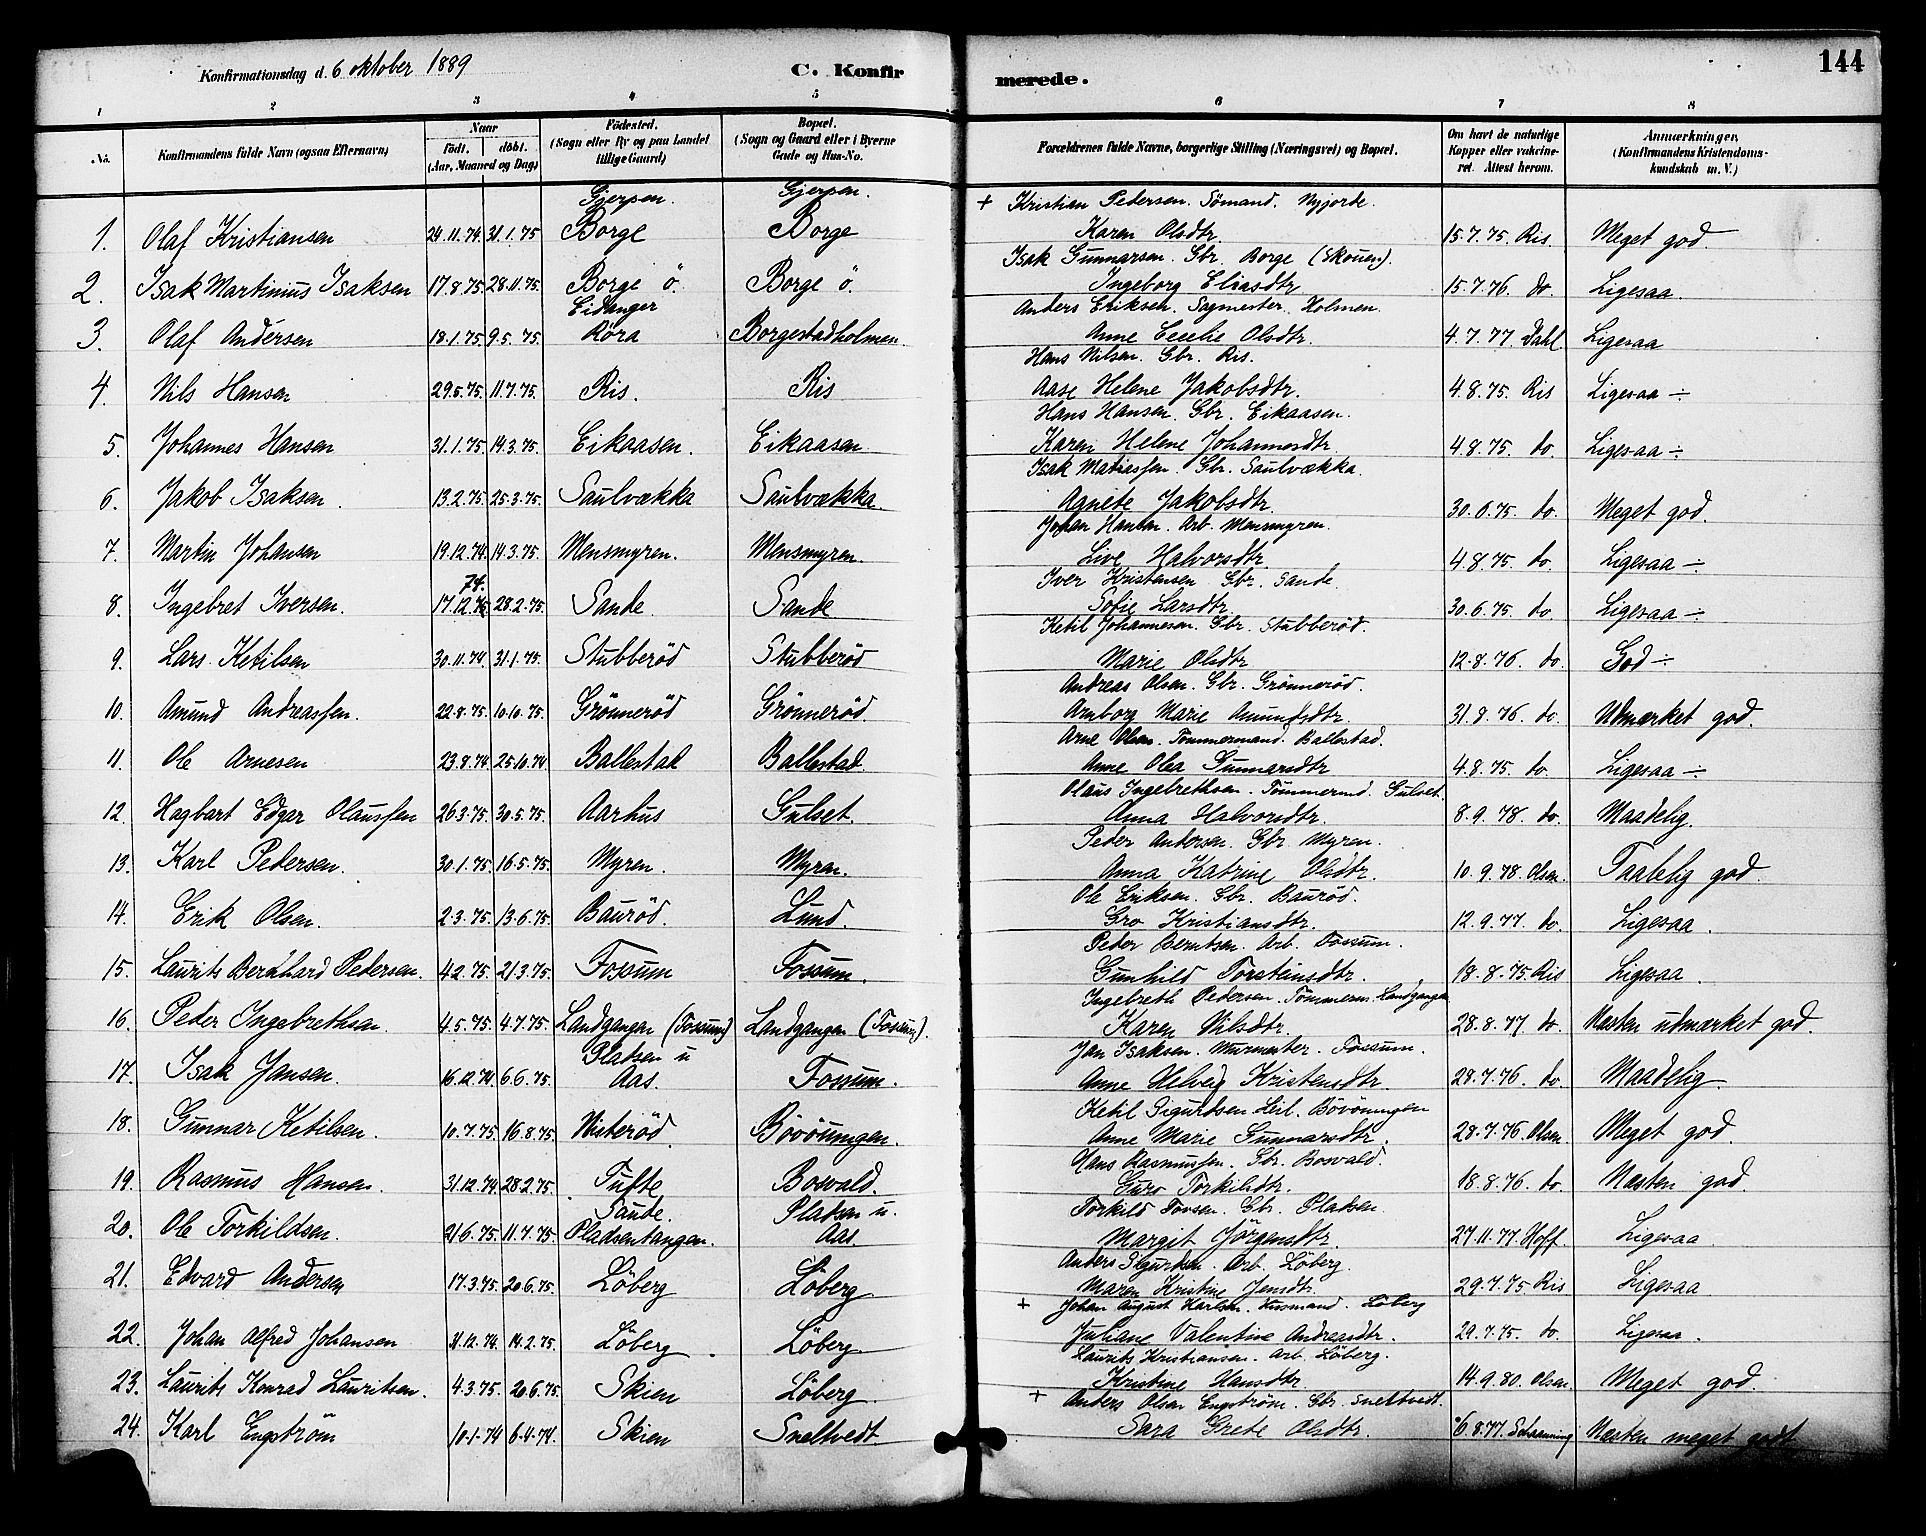 144
Konfirmationsdag d. 6 oktober 1889 C. Konfirmerede.
1 2 3 4 5 6 7 8
No. Konfirmandens fulde Navn (ogsaa Efternavn) Naar födt. döbt. (Aar, Maaned og Dag) Födested. (Sogn eller By og paa Landet tillige Gaard) Bopæl. (Sogn og Gaard eller i Byerne Gade og Hus-No. Forældrenes fulde Navne, borgerlige Stilling (Næringsvei) og Bopæl. Om havt de naturlige Kopper eller vaccineret. Attest herom. Anmærkninger, (Konfirmandens Kristendomskundskab m. V.)
Gjerpen. Gjerpen. + Kristian Pedersen. Sömand. Nyjorde.
1. Olaf Kristiansen 24.11.74. 31.1.75 Borge Borge Karen Olsdtr. 15.7.75. Ris. Meget god
Isak Gunnarsen. Gbr. Borge (Skouen).
2. Isak Martinius Isaksen 17.8.75. 28.11.75. Borge ö. Borge ö. Ingeborg Eliasdtr. 15.7.76. do. Ligesaa.
Eidanger Anders Eriksen. Sagmester. Holmen.
3. Olaf Andersen 18.1.75. 9.5.75. Röra Borgestadholmen Anne Cecelie Olsdtr. 4.7.77 Dahl Ligesaa
Hans Nilsen. Gbr. Ris.
4. Nils Hansen 29.5.75. 11.7.75. Ris. Ris Aase Helene Jakobsdtr. 4.8.75. Ris Ligesaa ÷
Hans Hansen. Gbr. Eikaasen.
5. Johannes Hansen 31.1.75. 14.3.75. Eikaasen. Eikaasen. Karen Helene Johannesdtr. 4.8.75. do. Ligesaa ÷
Isak Matiassen. Gbr. Saulvækka.
6. Jakob Isaksen. 13.2.75. 25.3.75. Saulvækka Saulvækka. Agnete Jakobsdtr. 30.6.75. do. Meget god.
Johan Hansen. Arb. Mensmyren.
7. Martin Johansen 19.12.74. 14.3.75. Mensmyren. Mensmyren. Live Halvorsdtr. 4.8.75. do. Ligesaa ÷
74. Iver Kristensen. Gbr. Sande
8. Ingebret Iversen. 17.12. 28.2.75. Sande. Sande Sofie Larsdtr. 30.6.75. do Ligesaa ÷
Ketil Johannesen. Gbr. Stubberöd.
9. Lars Ketilsen 30.11.74 31.1.75. Stubberöd Stubberöd Marie Olsdtr 12.8.76. do. God ÷
Andreas Olsen. Gbr. Grönneröd.
10. Amund Andreassen. 22.8.75. 10.10.75. Grönneröd Grönneröd. Arnborg Marie Amundsdtr. 31.8.76. do. Udmærket god.
Arne Olsen. Tömmermand. Ballestad.
11. Ole Arnesen 23.8.74 25.10.74 Ballestad Ballestad. Anne Olea Gunnarsdtr 4.8.75. do. Ligesaa ÷
Olaus Ingebrethsen. Tömmermd. Gulset.
12. Hagbart Edgar Olaussen 26.3.75. 30.5.75. Aarhus Gulset. Anna Halvorsdtr. 8.9.78. do. Maadelig.
Peder Andersen. Gbr. Myren.
13. Karl Pedersen. 30.1.75. 16.5.75. Myren. Myren. Anna Katrine Olsdtr. 10.9.78. Olsen. Taalelig god.
Ole Eriksen. Gbr. Bauröd.
14. Erik Olsen. 2.3.75. 13.6.75. Bauröd. Lund. Gro Kristiansdtr. 12.9.77. do. Ligesaa.
Peder Berntsen. Arb. Fossum.
15. Laurits Bernhard Pedersen. 4.2.75. 21.3.75. Fossum Fossum. Gunhild Torsteinsdtr. 18.8.75 Ris Ligesaa.
Ingebreth Pedersen. Tömmerm. Landgangen
16. Peder Ingebrethsen. 4.5.75. 4.7.75. Landgangen (Fossum) Landgangen (Fossum). Karen Nilsdtr. 28.8.77 do. Næsten udmærket god.
Pladsen u Jan Isaksen. Murmester. Fossum.
17. Isak Jansen. 16.12.74. 6.6.75. Aas. Fossum. Anne Helvig Kristensdtr. 28.7.76. do Maadelig
Ketil Sigurdsen Leil. Bövöningen
18. Gunnar Ketilsen. 10.7.75. 16.8.75. Nisteröd. Bövöningen. Anne Marie Gunnarsdtr. 28.7.76. Olsen. Meget god.
Hans Rasmussen. Gbr. Bosvald.
19. Rasmus Hansen. 31.12.74 28.2.75. Tufte Bosvald. Guro Torkilsdtr. 18.8.76. do. Næsten god.
Saude. Pladsen u. Torkild Tovsen. Gbr. Pladsen
20. Ole Torkildsen. 21.6.75. 11.7.75. Pladsentangen. Aas Margit Jörgensdtr. 27.11.77. Hoff. Ligesaa.
Anders Sigurdsen. Arb. Löberg.
21. Edvard Andersen 17.3.75 20.6.75. Löberg Löberg Maren Kristine Jensdtr. 29.7.75 Ris Ligesaa
+ Johan August Karlsen. Husmand. Löberg
22. Johan Alfred Johansen 11.12.74. 14.2.75. Löberg. Löberg. Juliane Valentine Andreasdtr. 29.7.75. do. Ligesaa.
Laurits Kristiansen. Arb. Löberg.
23. Laurits Konrad Lauritsen. 4.3.75. 20.6.75. Skien Löberg. Kristine Hansdtr. 14.9.80. Olsen. Meget god.
+ Anders Olsen Engström. Gbr. Sneltvedt.
24. Karl Engström 10.1.74 6.4.74. Skien Sneltvedt. Sara Grete Olsdtr. 6.8.77. Schaanning Næsten meget godt